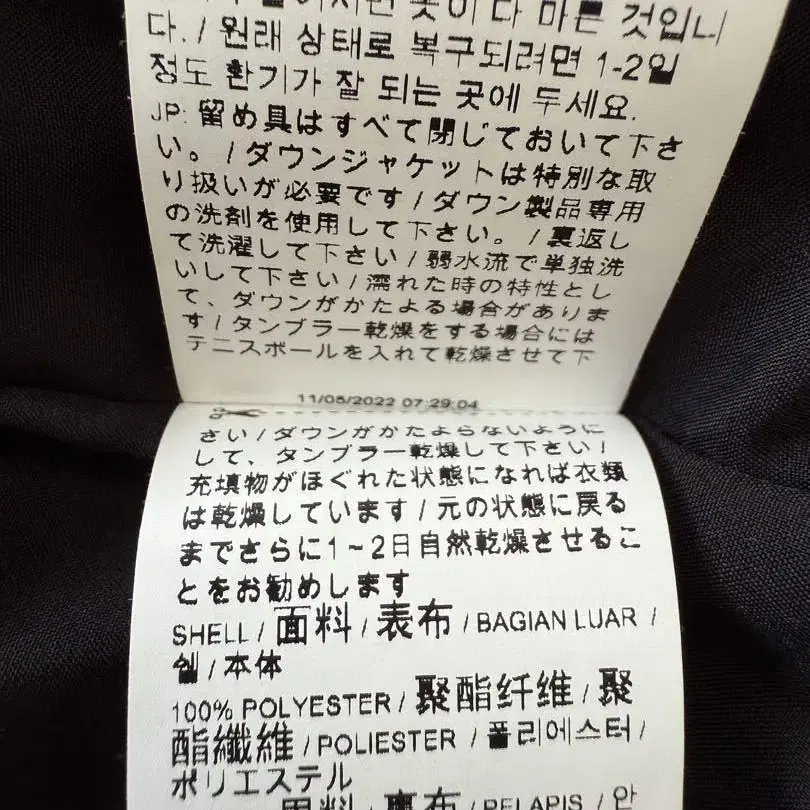 다. / 원래 상태로 복구되려면 1-2일
정도 환기가 잘 되는 곳에 두세요.
JP: 留め具はすべて閉じておいて下さ
い。 / ダウンジャケットは特別な取
り扱いが必要です / ダウン製品専用
の洗剤を使用して下さい。 / 裏返し
て洗濯して下さい / 弱水流で単独洗
いして下さい / 濡れた時の特性とし
て、ダウンがかたよる場合がありま
す / タンブラー乾燥をする場合には
テニスボールを入れて乾燥させて下
11/05/2022 07:29:04
さい / ダウンがかたよらないように
して、タンブラー乾燥して下さい /
充填物がほぐれた状態になれば衣類
は乾燥しています / 元の状態に戻る
までさらに1~2日自然乾燥させるこ
とをお勧めします
SHELL / 面料 / 表布 / BAGIAN LUAR /
쉘 / 本体
100% POLYESTER / 聚酯纤维 / 聚
酯纖維 / POLIESTER / 폴리에스터 /
ポリエステル
里料 / 裏布 / PELAPIS / 안